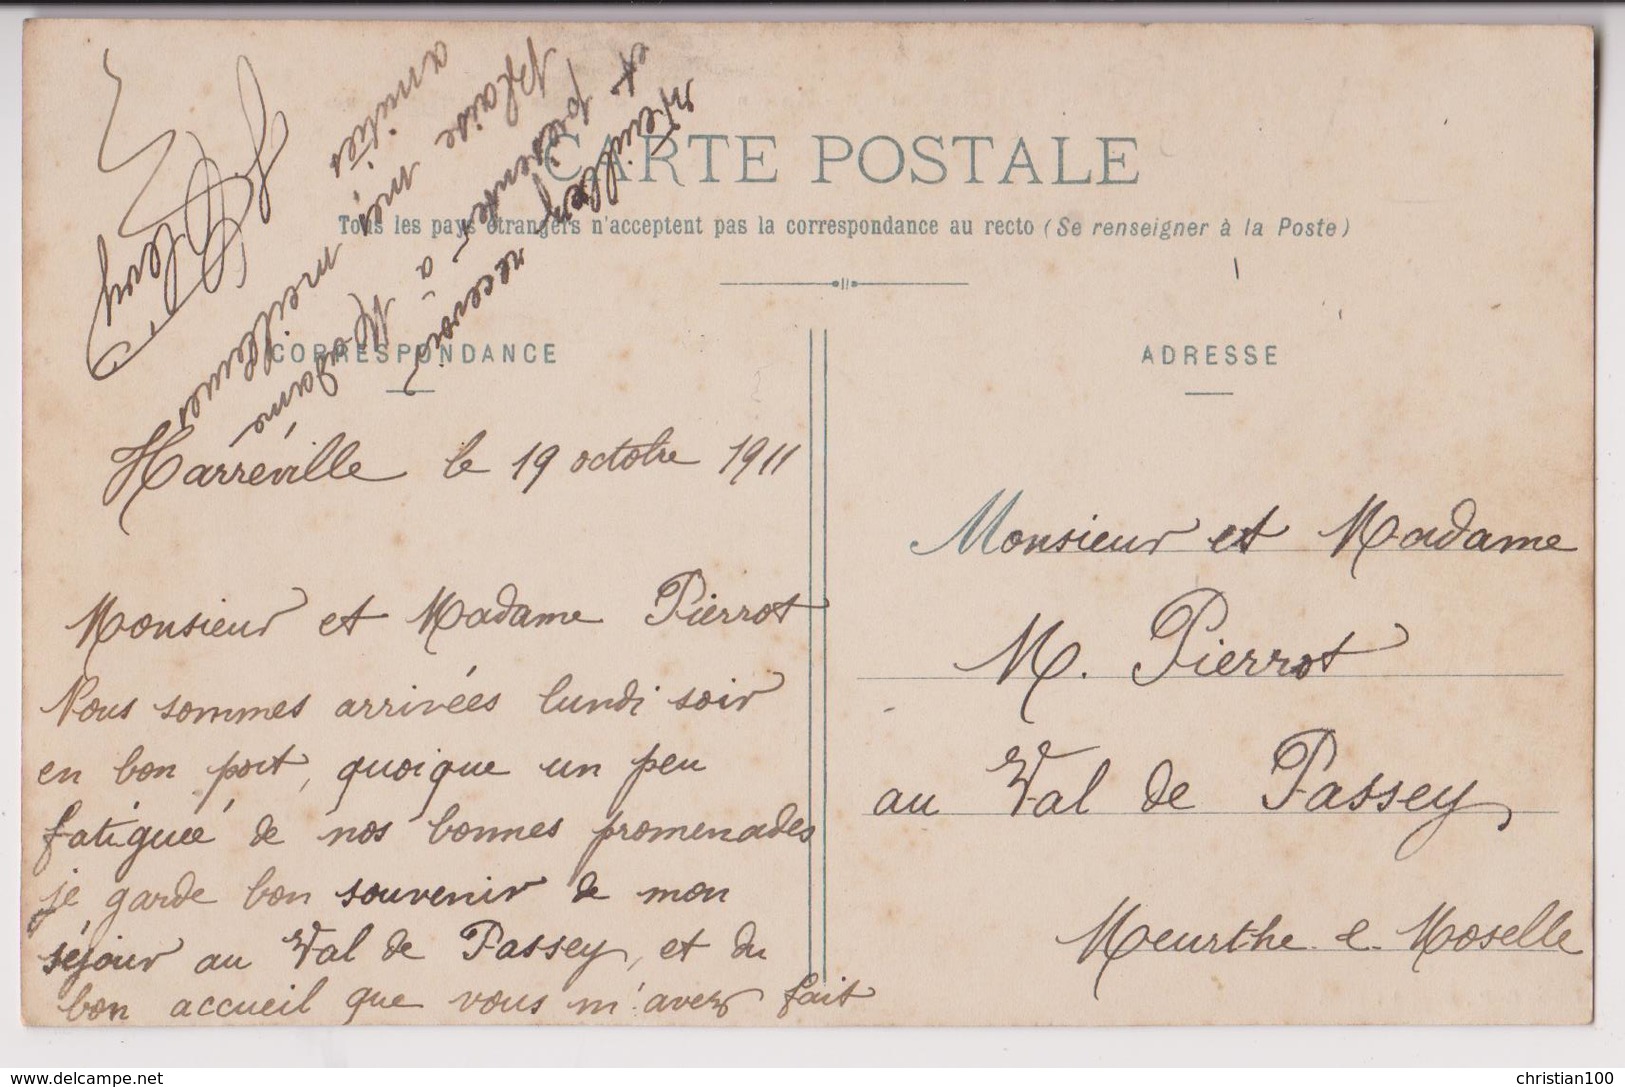 CARTE POSTALE
Tous les pays étrangers n'acceptent pas la correspondance au recto (Se renseigner à la Poste)
CORRESPONDANCE
ADRESSE
Harréville le 19 octobre 1911
Monsieur et Madame Pierrot
Nous sommes arrivées lundi soir
en bon port, quoique un peu
fatiguée de nos bonnes promenades
je garde bon souvenir de mon
séjour au Val de Passey, et du
bon accueil que vous m'avez fait
Veuillez recevoir
et présenter à Madame
Blaise mes meilleures
amitiés
Monsieur et Madame
M. Pierrot
au Val de Passey
Meurthe e. Moselle
www.delcampe.net
christian100